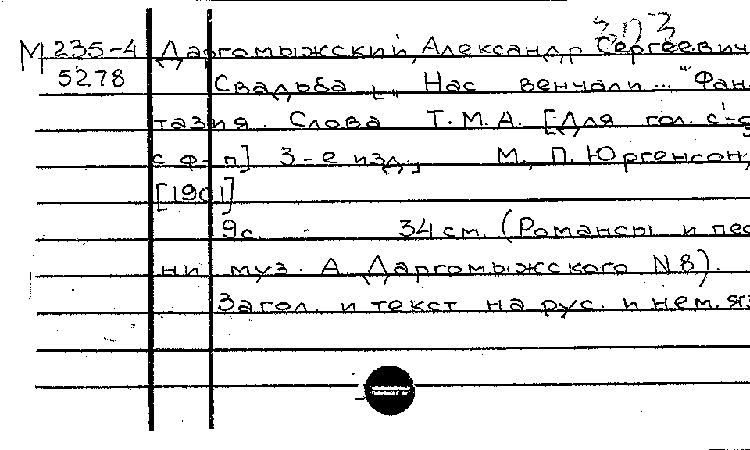 303
М 235-4 Даргомыжский, Александр Сергеевич
52.78 Свадьба. [„Нас венчали..." Фан-
тазия. Слова Т.М.А. [Для гол. c1-g
с ф-п] 3-е изд., М., П. Юргенсон,
[1901]
9с. 34 см. (Романсы и пес
ни муз. А. Даргомыжского N 8).
Загол. и текст на рус. и нем. яз